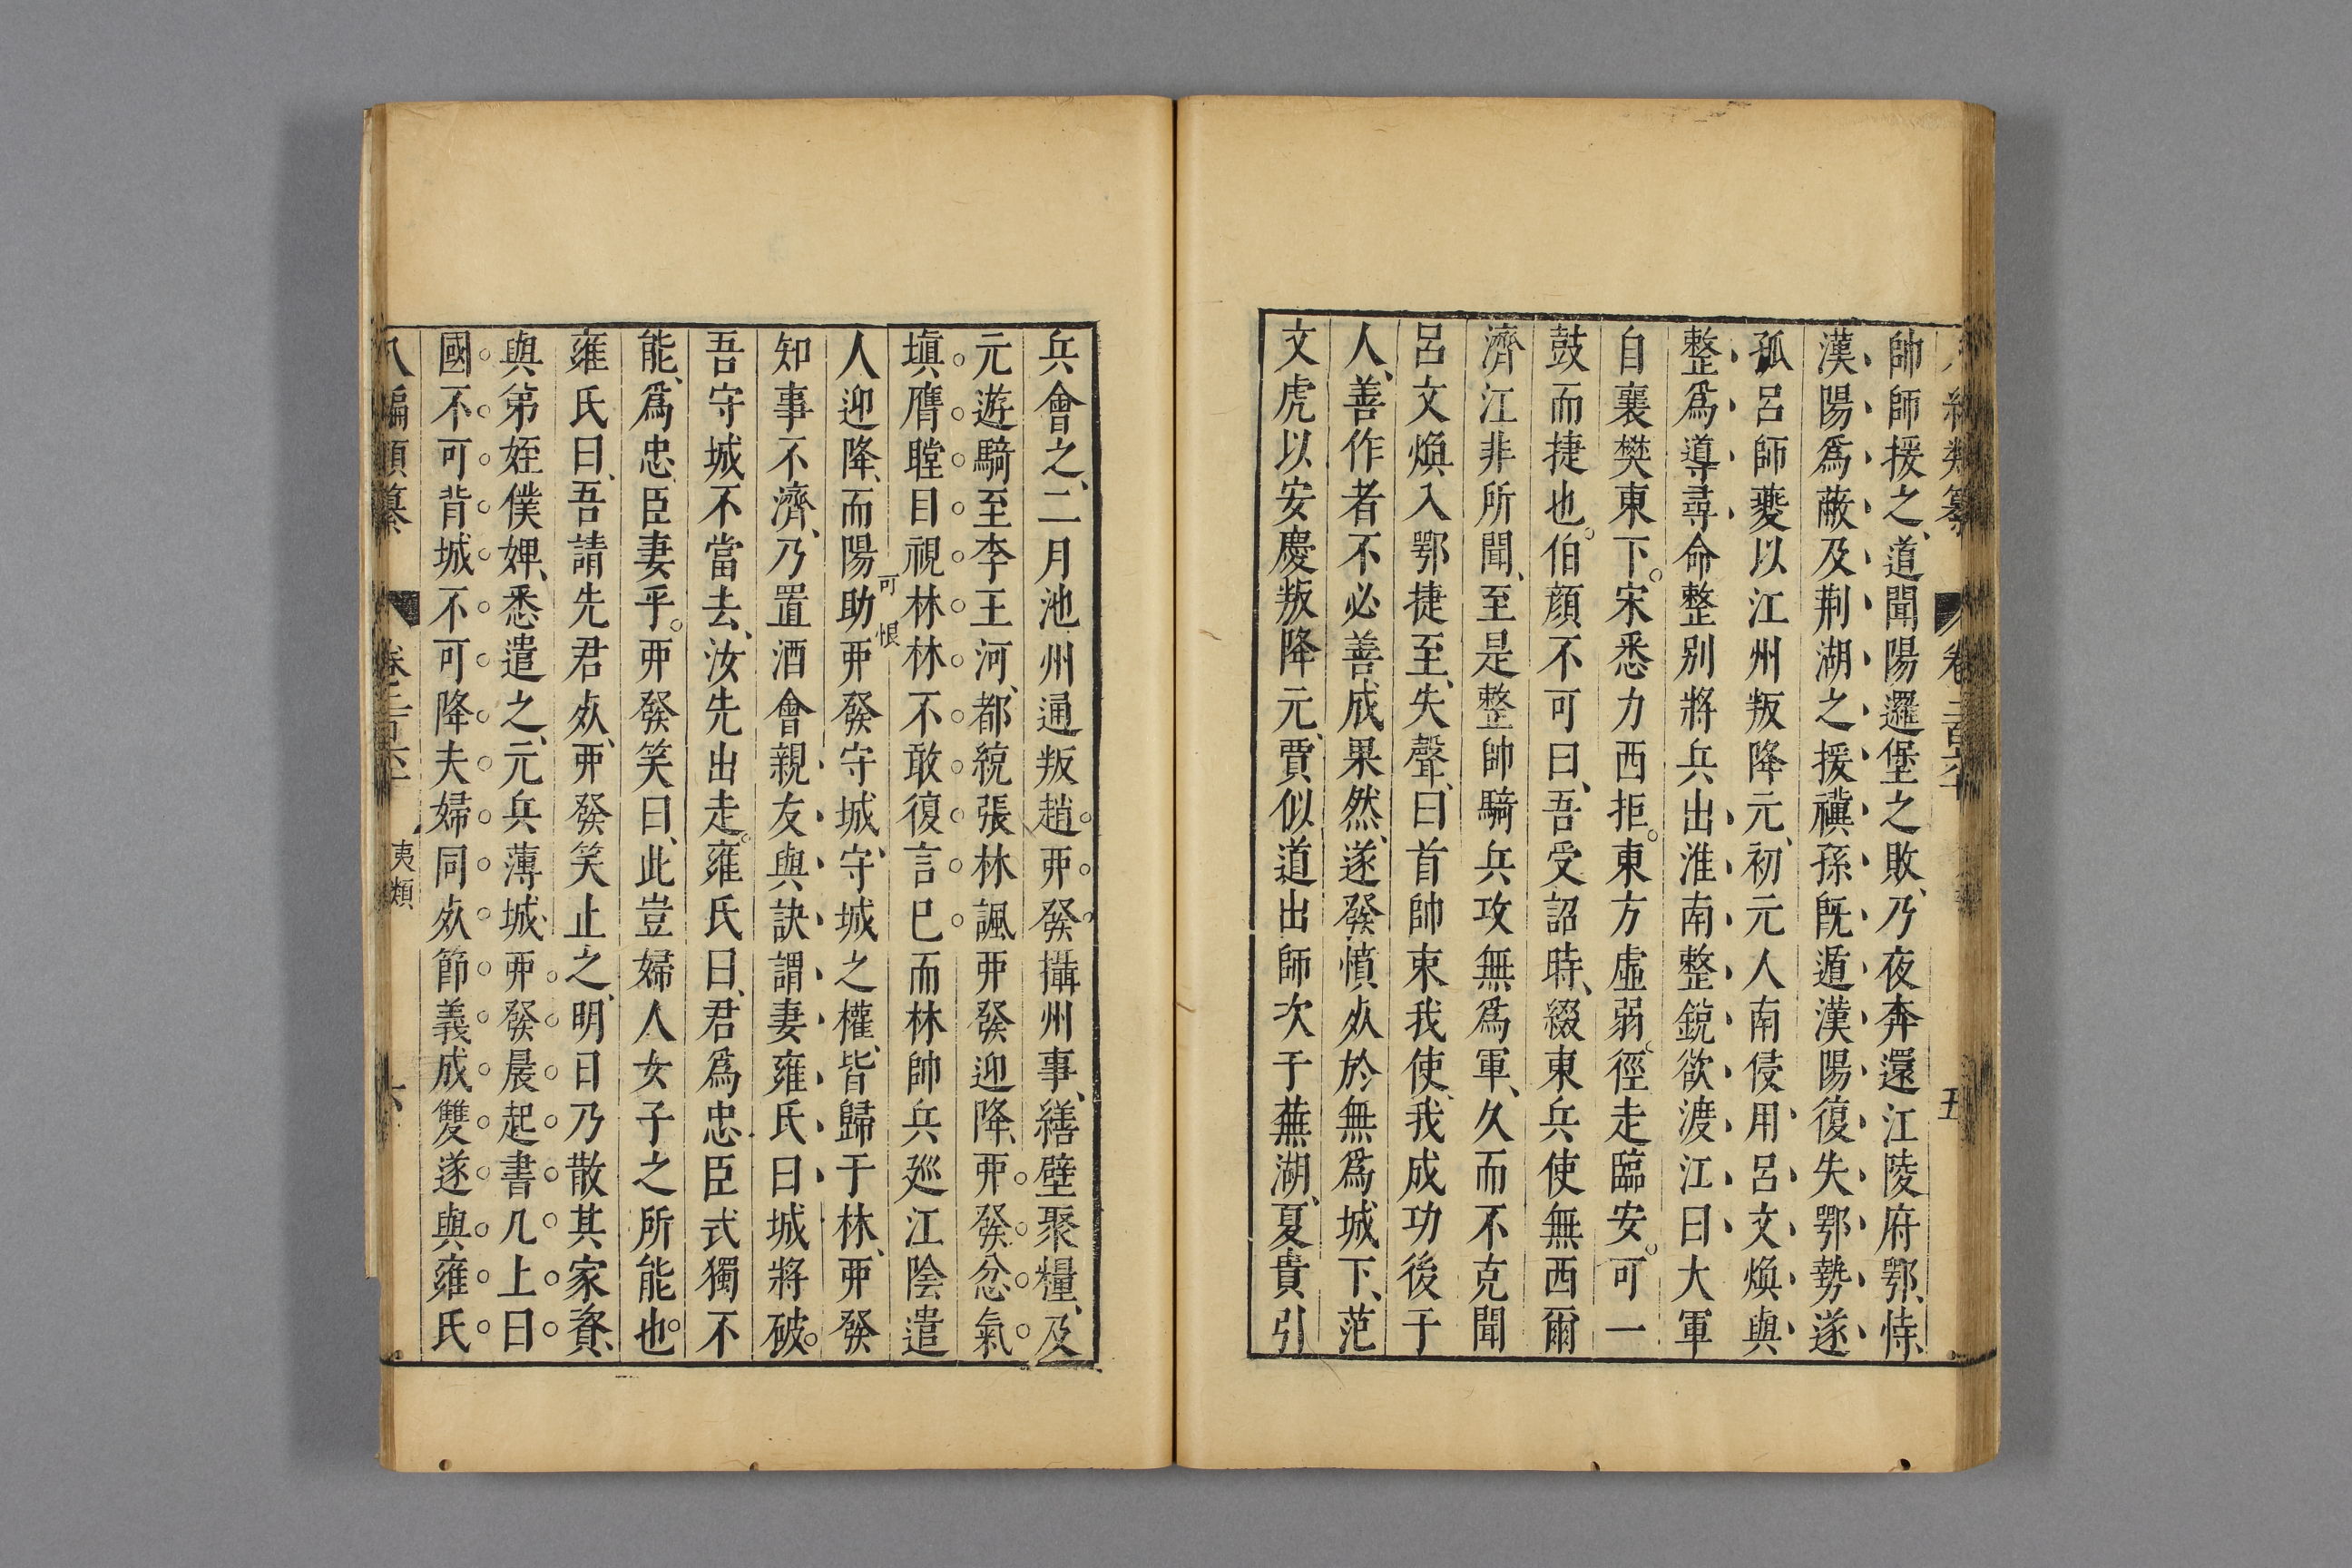 八編類纂 卷二百六十 五
帥師援之、道聞陽邏堡之敗、乃夜奔還江陵府鄂、恃
漢陽爲蔽及荆湖之援禩孫旣遁漢陽復失鄂勢遂
孤呂師夔以江州叛降元、初元人南侵用呂文煥與
整爲導尋命整別將兵出淮南整銳欲渡江曰大軍
自襄樊東下。宋悉力西拒。東方虛弱。徑走臨安。可一
鼓而捷也。伯顔不可曰、吾受詔時、綴東兵使無西爾
濟江非所聞、至是整帥騎兵攻無爲軍、久而不克聞
呂文煥入鄂捷至、失聲、曰首帥束我使、我成功後于
人、善作者不必善成果然、遂發憤㱙於無爲城下、范
文虎以安慶叛降元、賈似道出師次于蕪湖、夏貴引
兵會之、二月池州通叛趙。丣。發。攝州事、繕壁聚糧、及
元遊騎至李王河、都統張林諷丣發迎降、丣發忿氣
塡膺瞠目視林林不敢復言巳而林帥兵廵江陰遣
可恨
人迎降、而陽助丣發守城、守城之權、皆歸于林、丣發
知事不濟、乃置酒會親友與訣謂妻雍氏曰城將破。
吾守城不當去、汝先出走。雍氏曰、君爲忠臣、我獨不
能、爲忠臣妻乎。丣發笑曰、此豈婦人女子之所能也。
雍氏曰、吾請先君㱙、丣發笑止之、明日乃散其家資、
與弟姪僕婢、悉遣之、元兵薄城、丣發晨起書几上曰
國不可背城不可降夫婦同㱙節義成雙遂與雍氏
八編類纂 卷二百六十 夷類 六